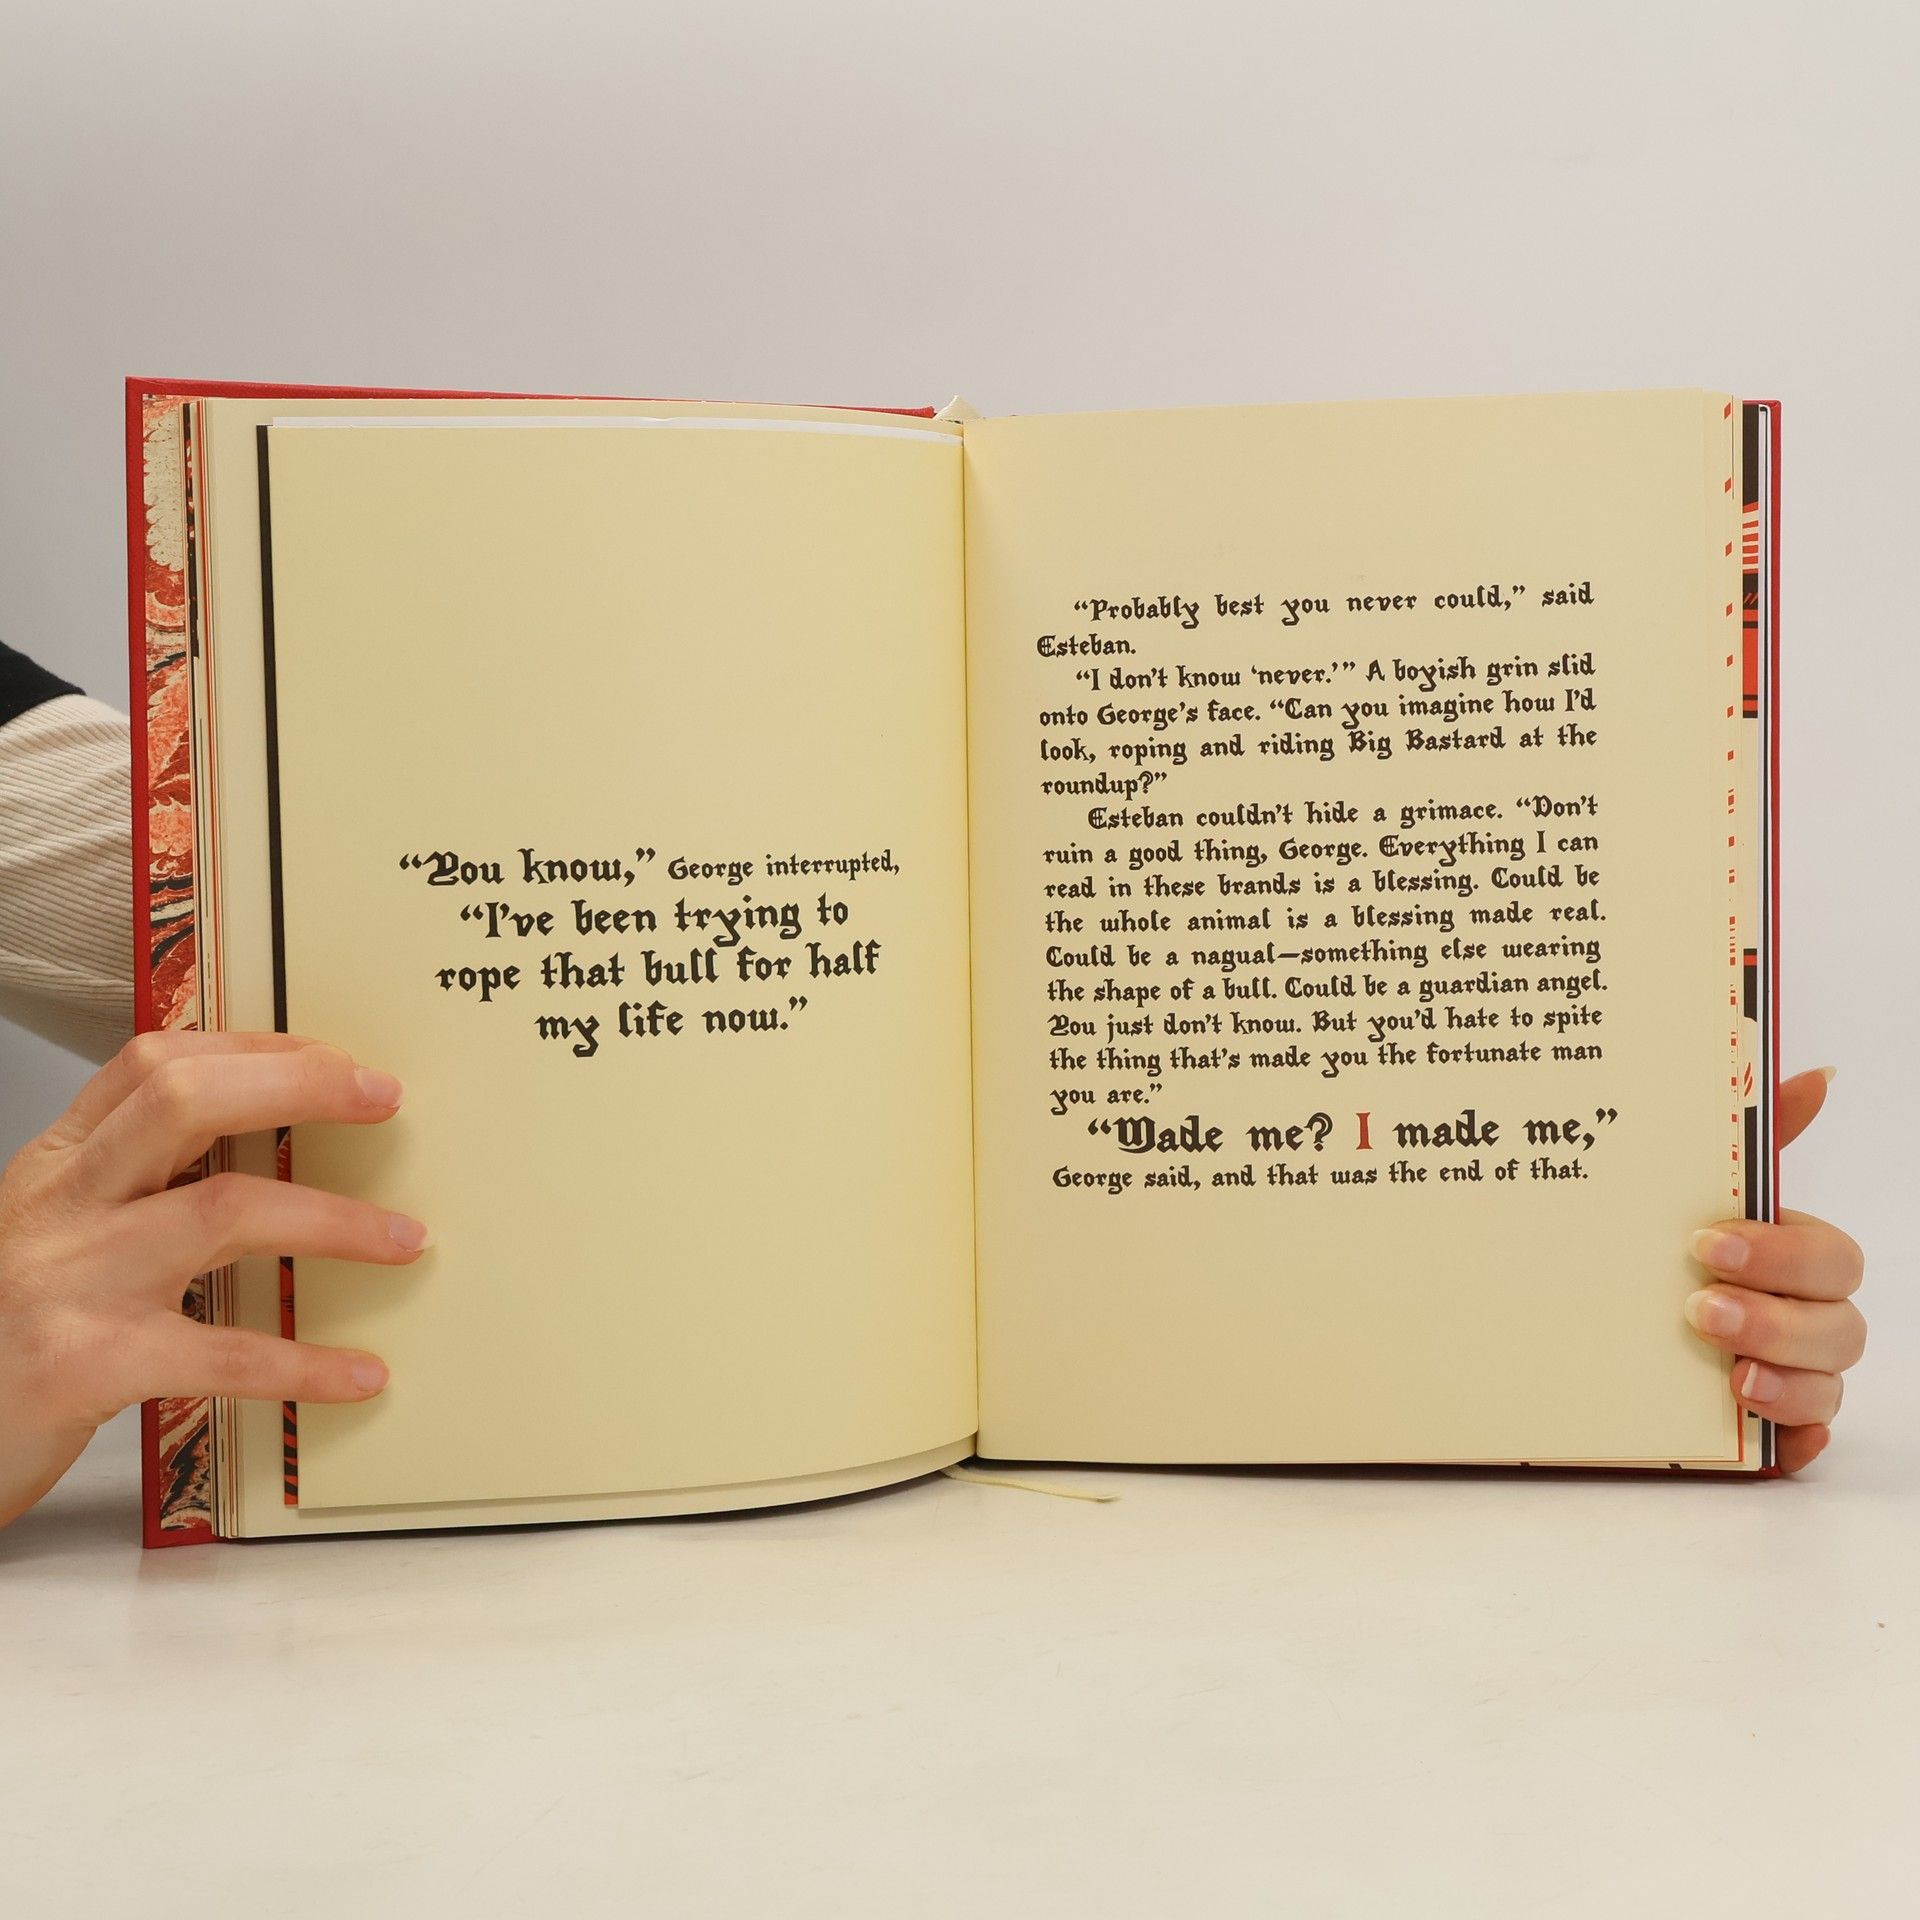 “You know,” George interrupted,
“I’ve been trying to
rope that bull for half
my life now.”
“Probably best you never could,” said
Esteban.
“I don’t know ‘never.’” A boyish grin slid
onto George’s face. “Can you imagine how I’d
look, roping and riding Big Bastard at the
roundup?”
Esteban couldn’t hide a grimace. “Don’t
ruin a good thing, George. Everything I can
read in these brands is a blessing. Could be
the whole animal is a blessing made real.
Could be a nagual—something else wearing
the shape of a bull. Could be a guardian angel.
You just don’t know. But you’d hate to spite
the thing that’s made you the fortunate man
you are.”
“Made me? I made me,”
George said, and that was the end of that.